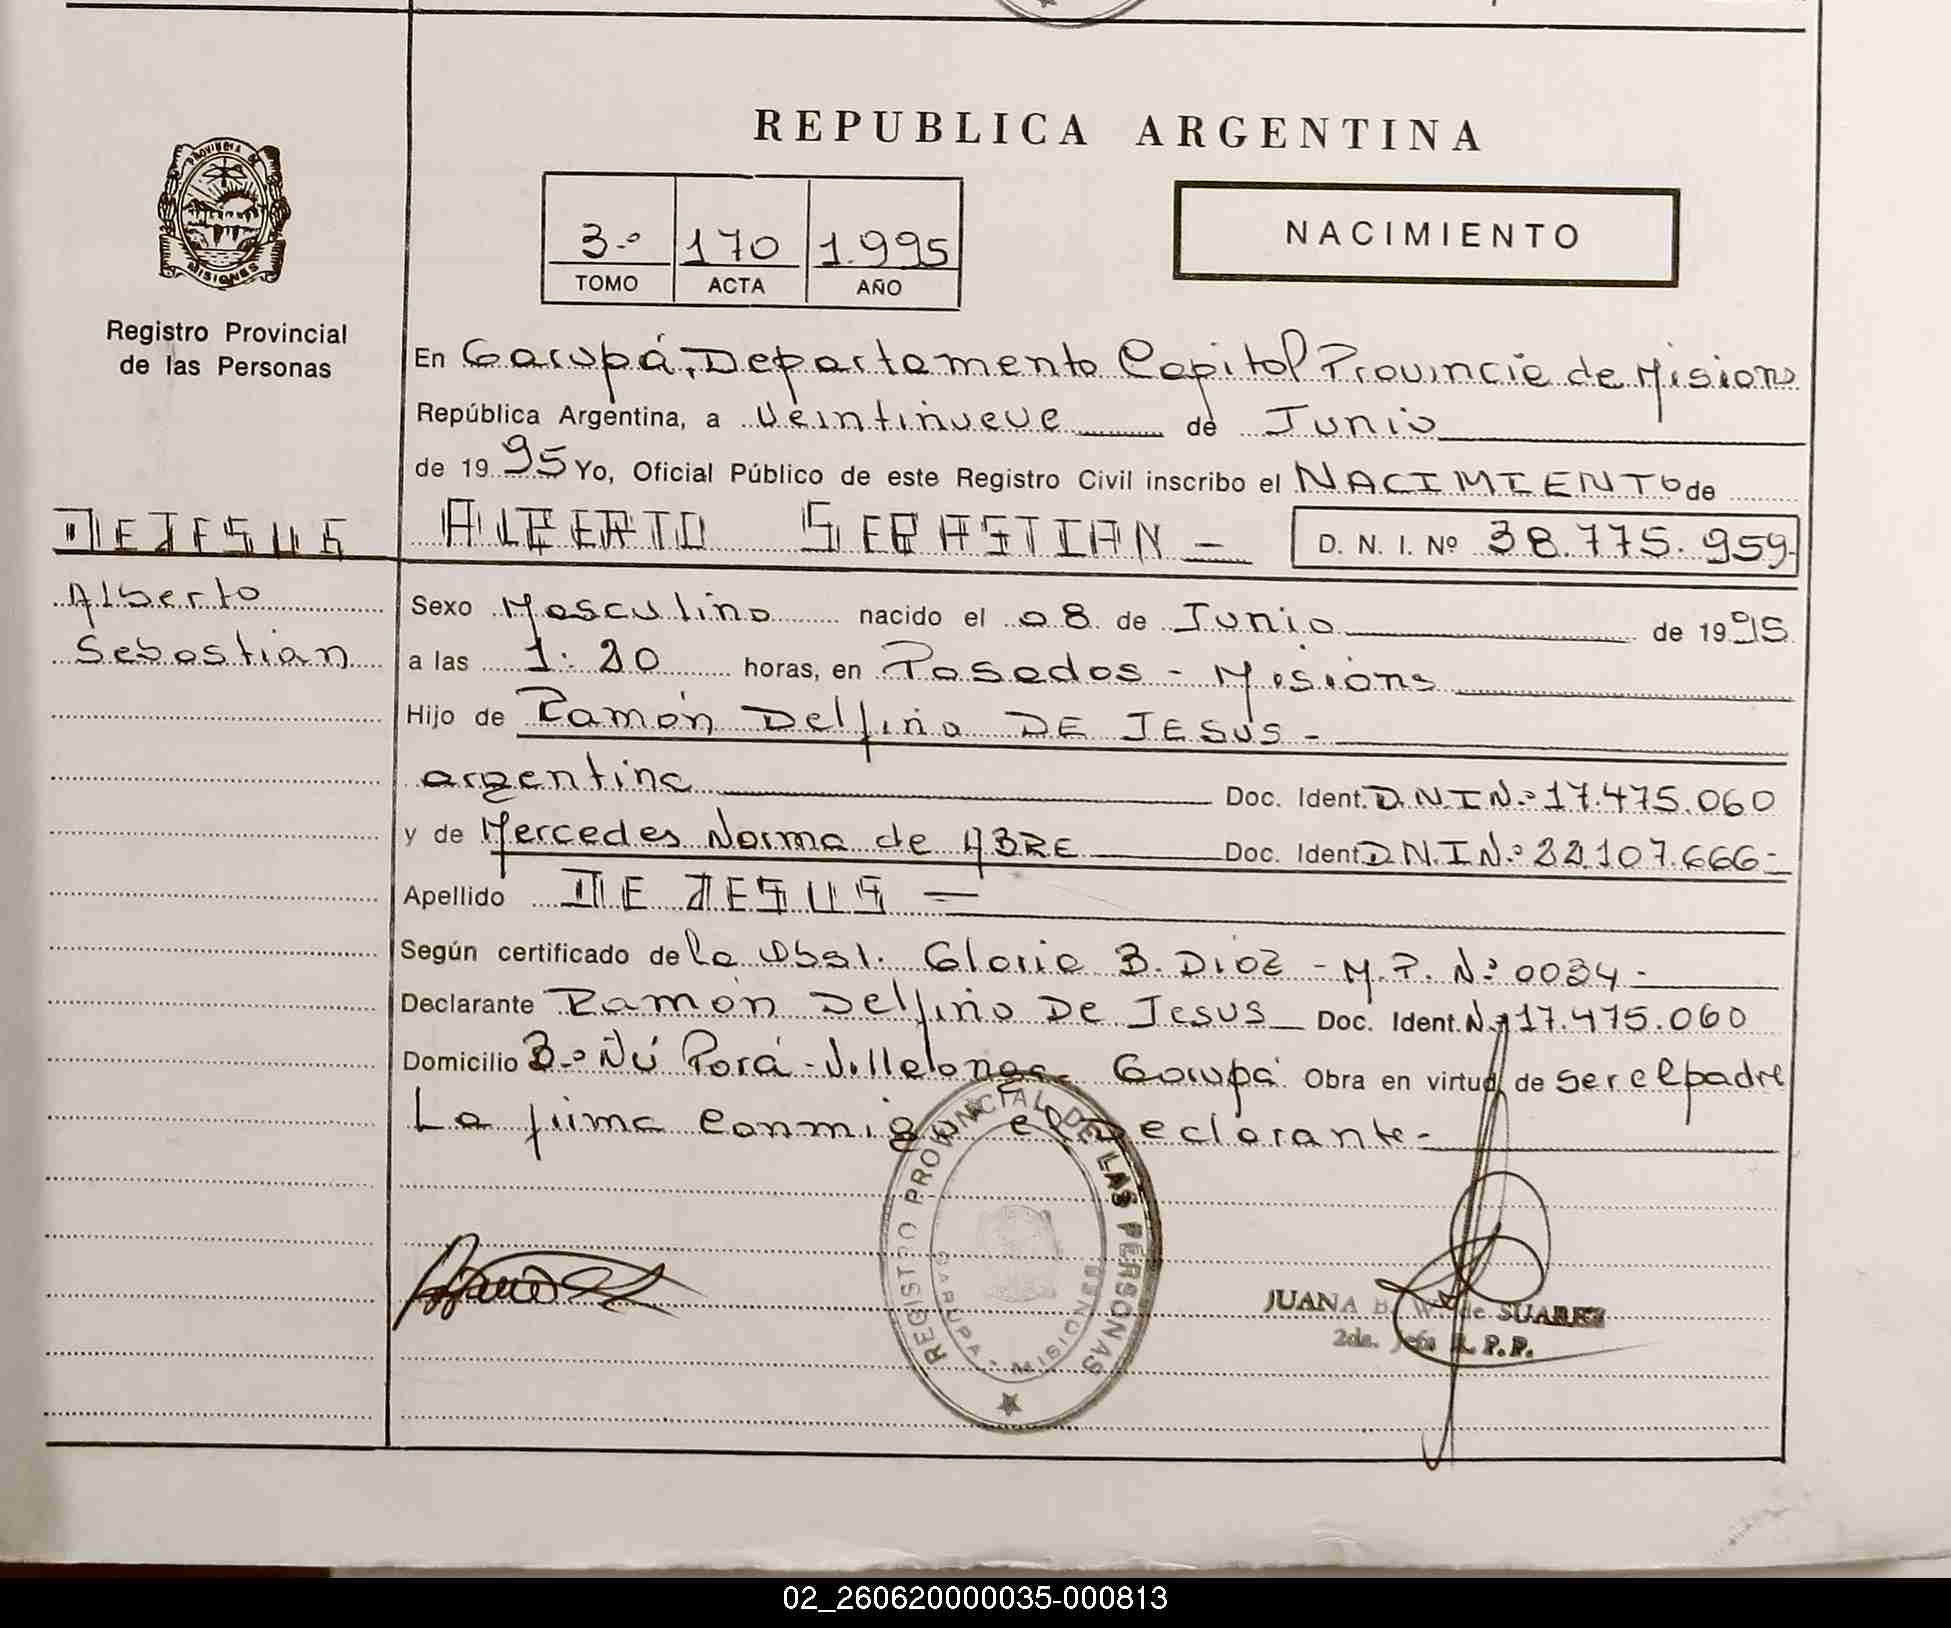 REPUBLICA ARGENTINA
PROVINCIA DE
MISIONES
Registro Provincial
de las Personas
3.º 170 1.995
TOMO ACTA AÑO
NACIMIENTO
En Garupá, Departamento Capital Provincia de Misions
República Argentina, a veintinueve de Junio
de 1995 Yo, Oficial Público de este Registro Civil inscribo el NACIMIENTO de
DE JESUS
ALBERTO SEBASTIAN - D. N. I. Nº 38.775.959-
Alberto
Sebastián
Sexo Masculino nacido el 08 de Junio de 1995
a las 1:20 horas, en Posadas - Misions
Hijo de Ramón Delfino DE JESUS -
argentino Doc. Ident. D.N.I N.º 17.475.060
y de Mercedes Norma de ABRE Doc. Ident D.N.I N.º 22.107.666-
Apellido DE JESUS =
Según certificado de la Obst. Gloria B. Díaz - M.P. N.º 0034-
Declarante Ramón Delfino De Jesus Doc. Ident. Nº 17.475.060
Domicilio B.º Ñú Porá - Villalonga - Garupá Obra en virtud de ser el padre
La firma conmigo el Declarante-
REGISTRO PROVINCIAL DE LAS PERSONAS
GARUPA - MISIONES
JUANA B. W. de SUAREZ
2da. Jefa R.P.P.
02_260620000035-000813